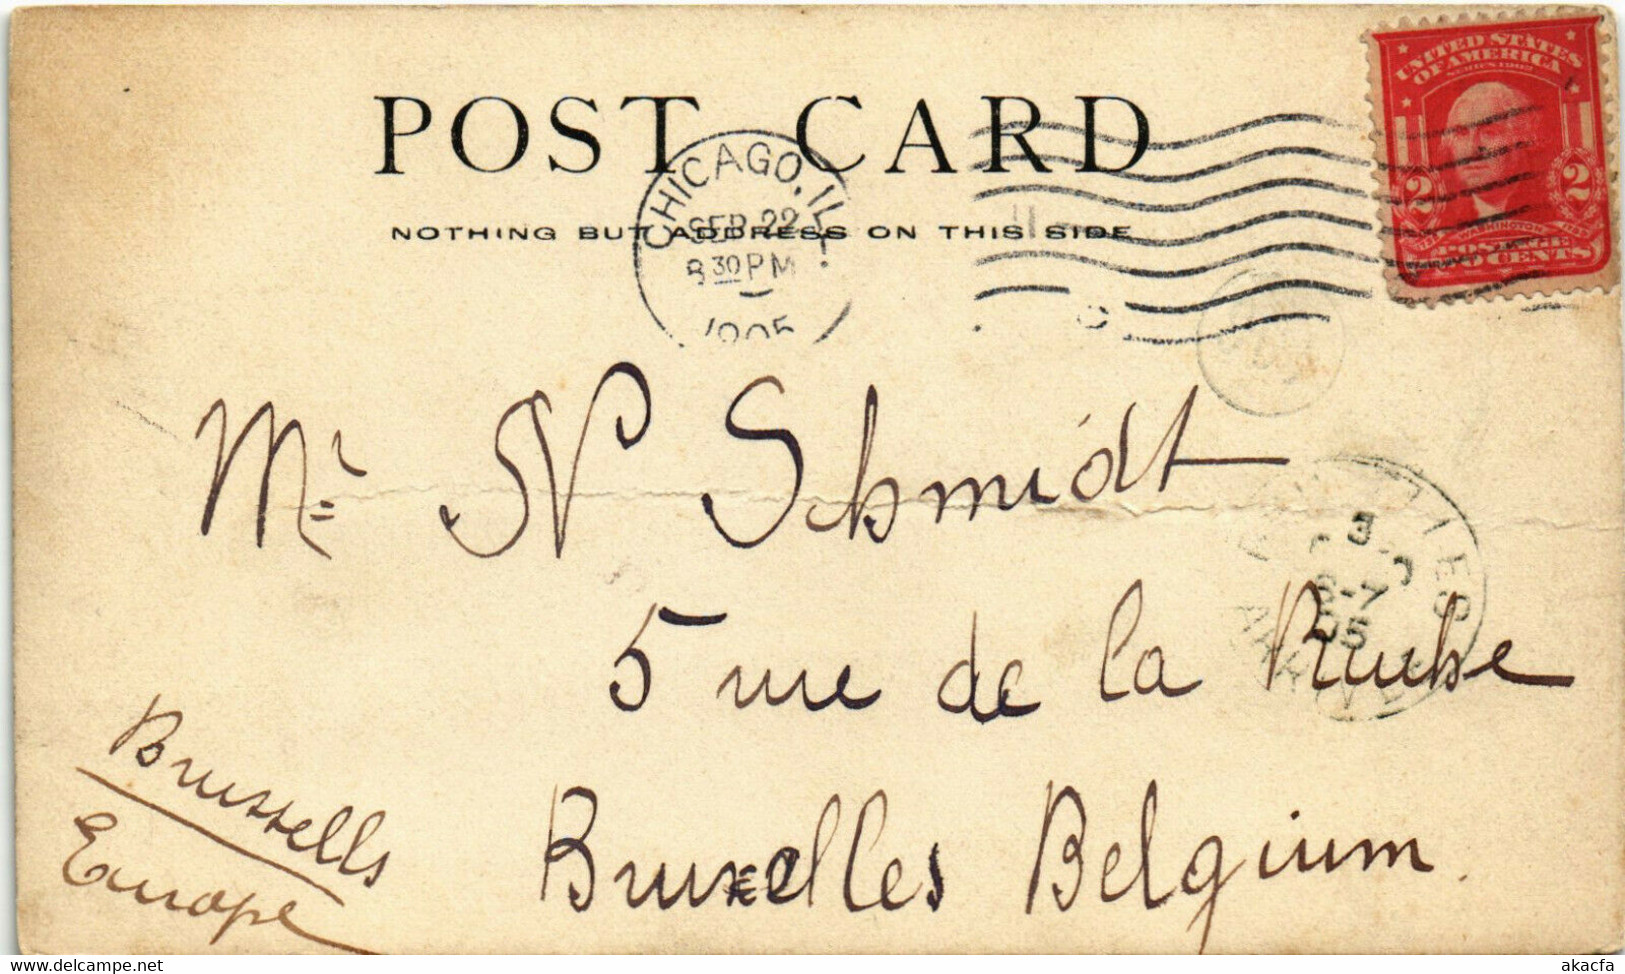 UNITED STATES
OF AMERICA
SERIES 1902
2 2
WASHINGTON
POSTAGE
TWO CENTS
POST CARD
NOTHING BUT ADDRESS ON THIS SIDE
CHICAGO, ILL.
SEP 22
8 30 PM
1905
Mr N Schmidt
5 rue de la Ruche
Bruxelles Belgium.
Brussells
Europe
6-7
05
akacfa
www.delcampe.net